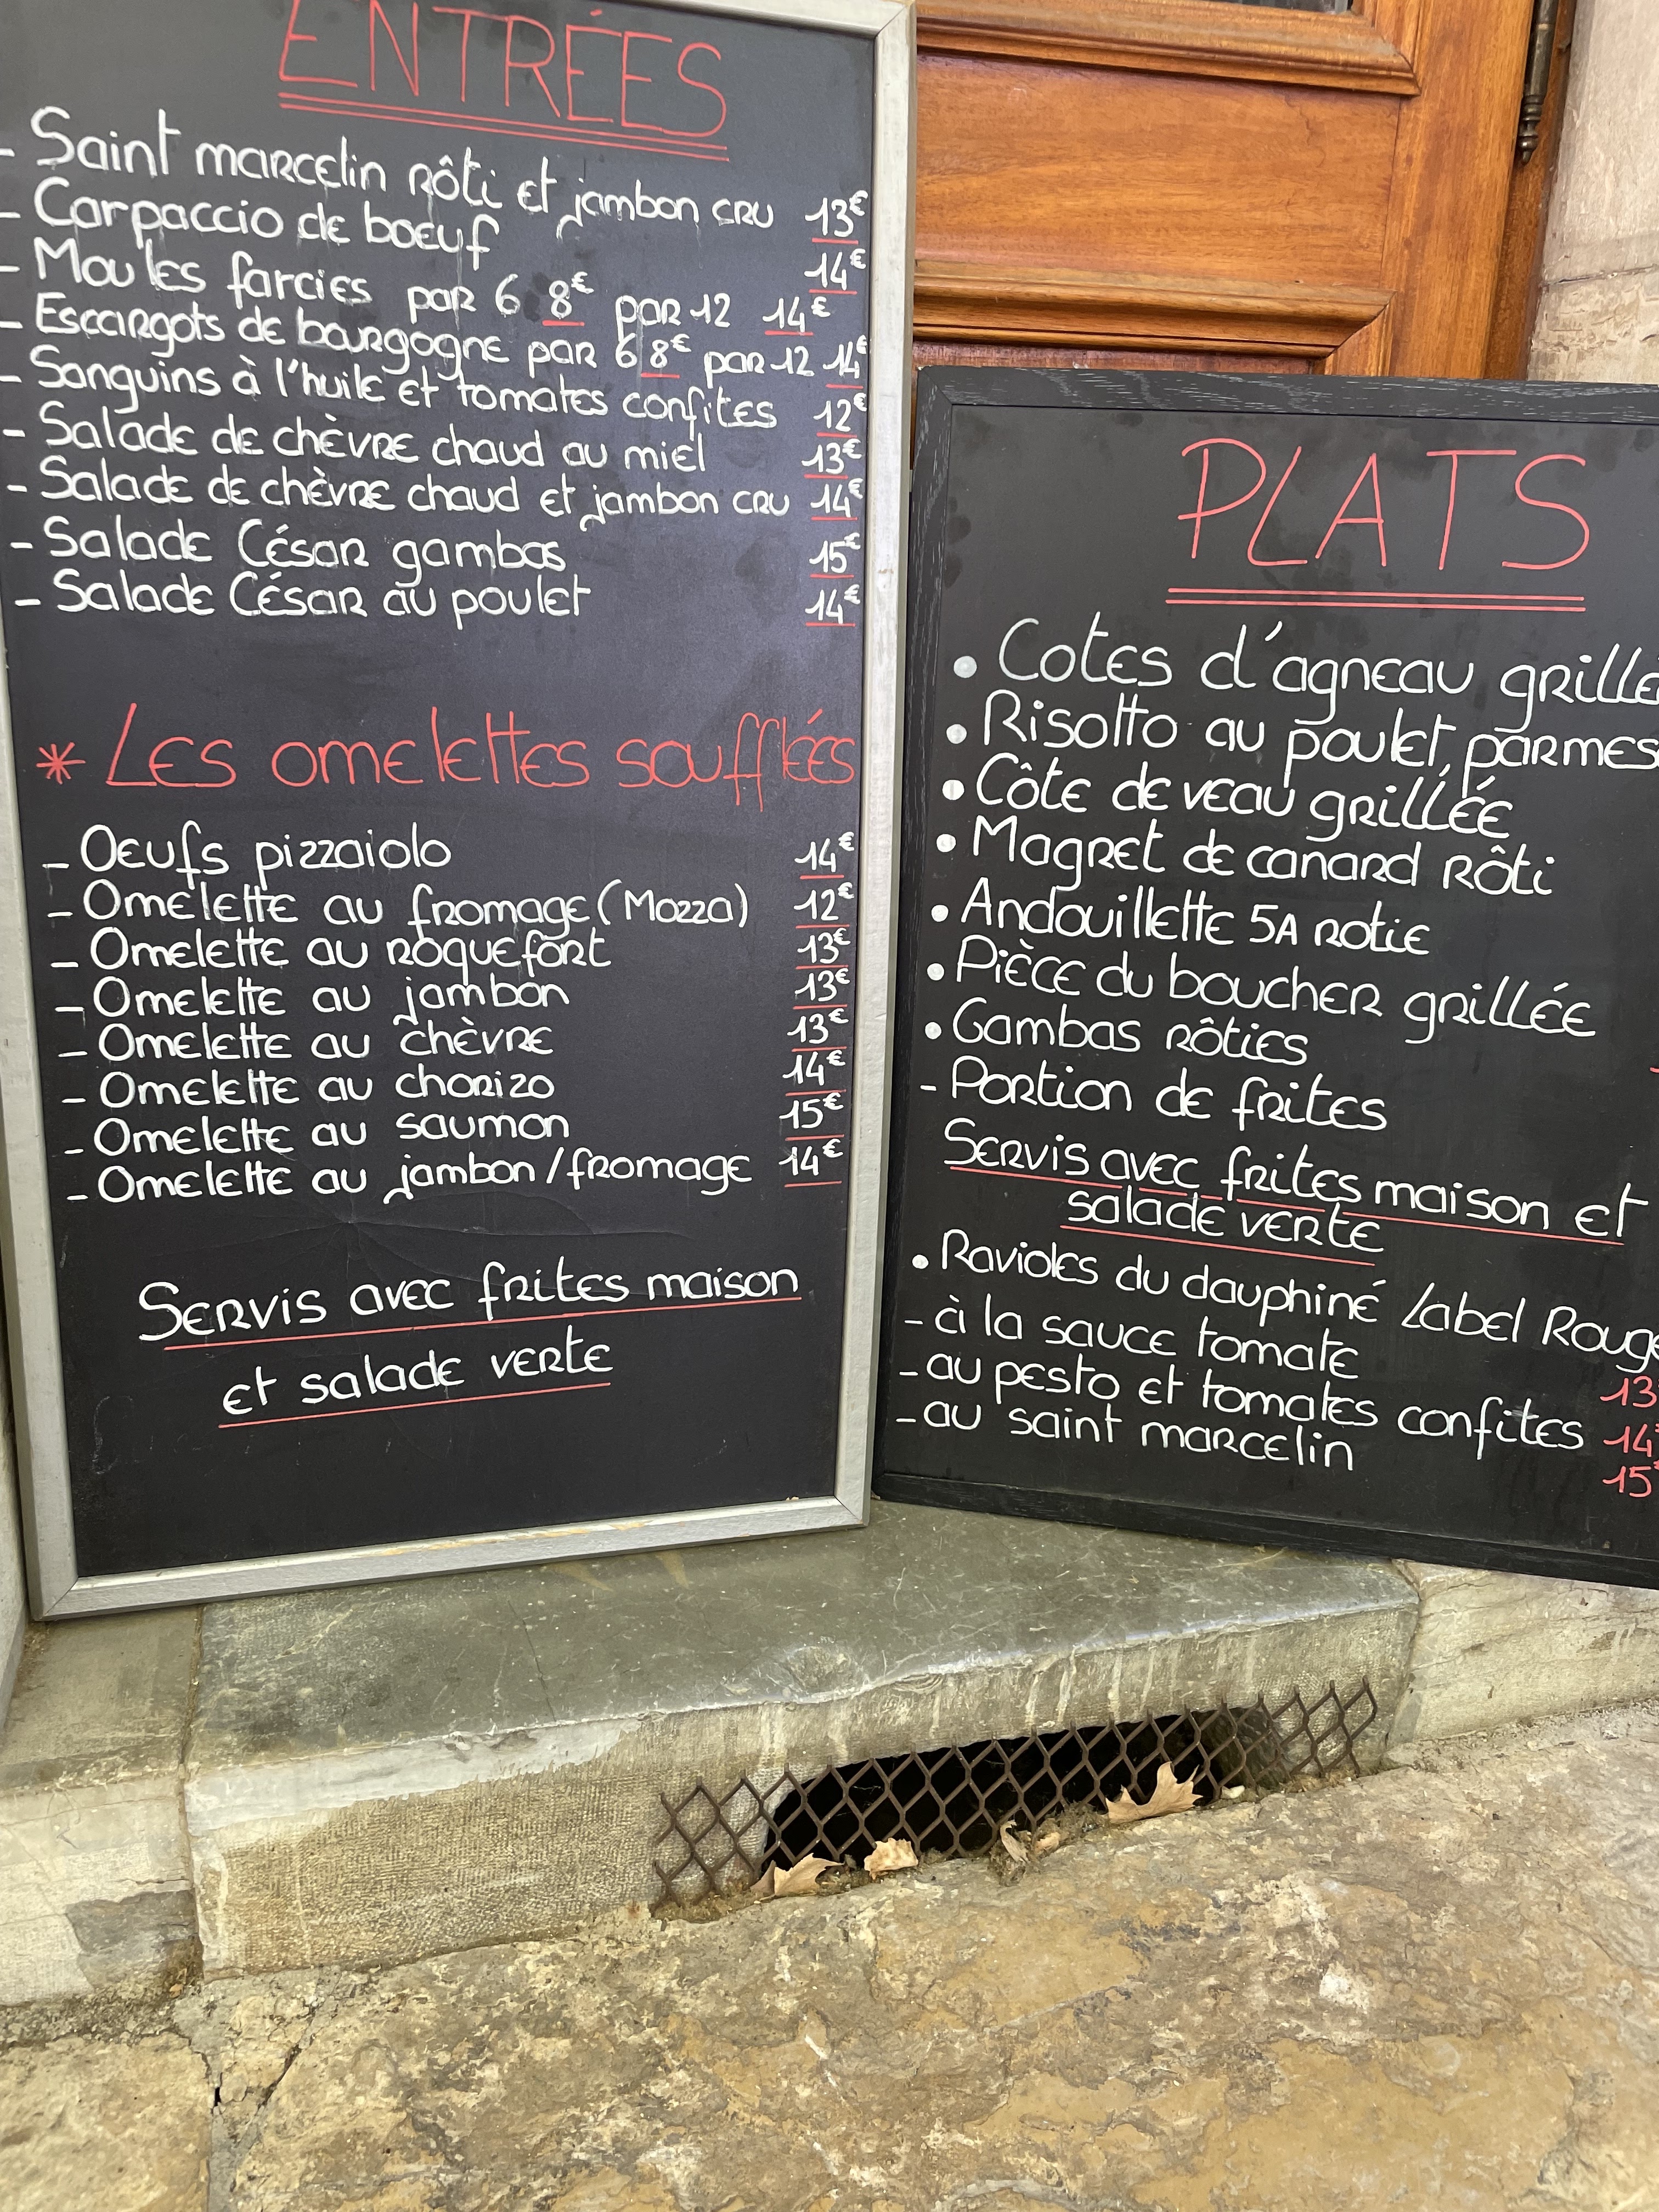 ENTRÉES
- Saint marcelin rôti et jambon cru 13€
- Carpaccio de boeuf 14€
- Moules farcies par 6 8€ par 12 14€
- Escargots de bourgogne par 6 8€ par 12 14€
- Sanguins à l'huile et tomates confites 12€
- Salade de chèvre chaud au miel 13€
- Salade de chèvre chaud et jambon cru 14€
- Salade César gambas 15€
- Salade César au poulet 14€
* Les omelettes soufflées
- Oeufs pizzaiolo 14€
- Omelette au fromage (Mozza) 12€
- Omelette au roquefort 13€
- Omelette au jambon 13€
- Omelette au chèvre 13€
- Omelette au chorizo 14€
- Omelette au saumon 15€
- Omelette au jambon/fromage 14€
Servis avec frites maison
et salade verte
PLATS
• Cotes d'agneau grillé
• Risotto au poulet, parmes
• Côte de veau grillée
• Magret de canard rôti
• Andouillette 5A rotie
• Pièce du boucher grillée
• Gambas rôties
- Portion de frites
Servis avec frites maison et
salade verte
• Ravioles du dauphiné Label Rouge
- à la sauce tomate 13
- au pesto et tomates confites 14
- au saint marcelin 15